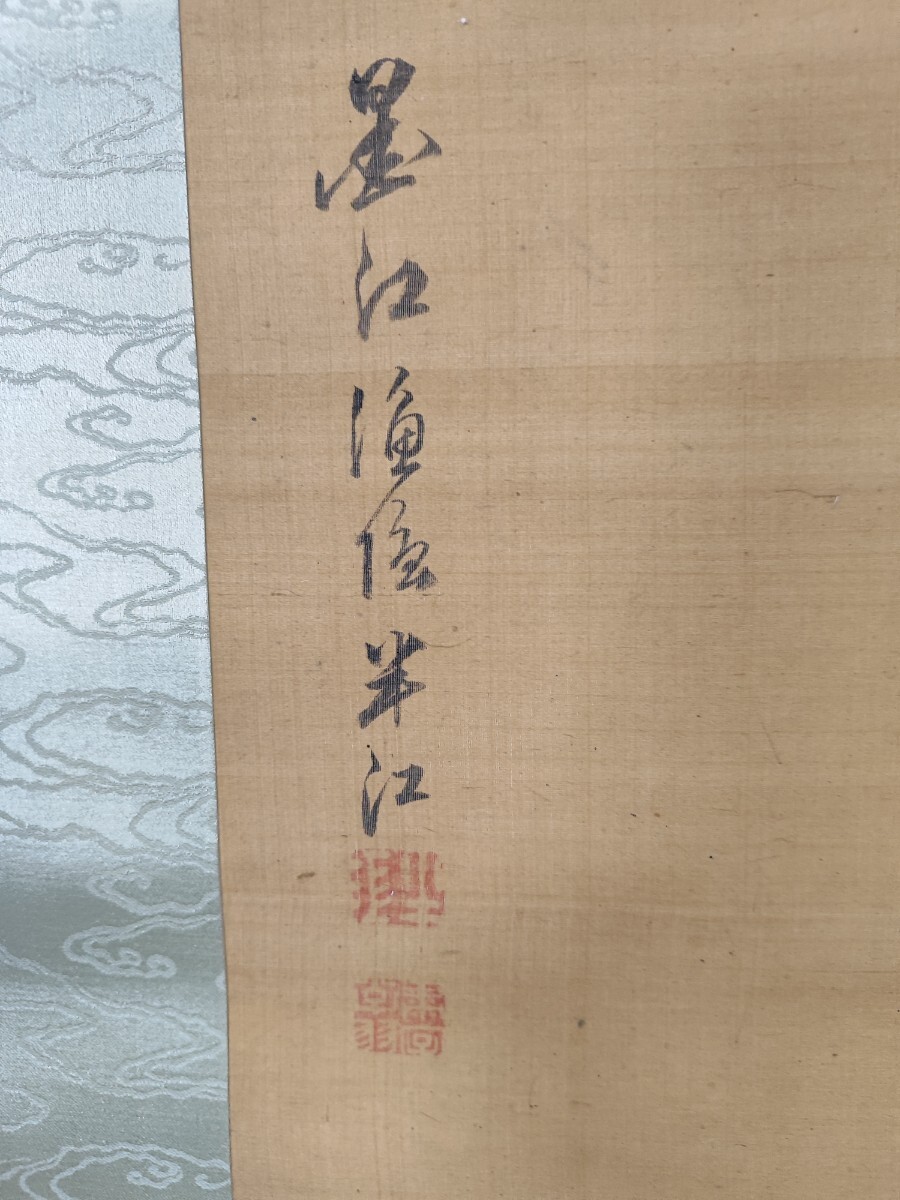 墨江漁隱半江